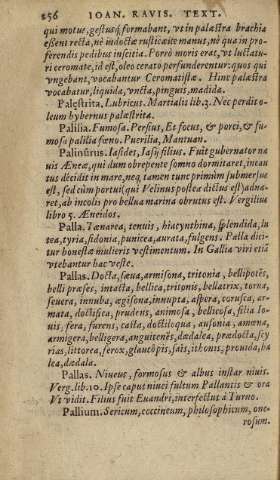 256 IOAN. RAVIS. TEXT.
qui motus, gestusq́; formabant, vt in palæstra brachia
essent recta, nè indoctæ rusticæúe manus, nè qua in pro-
ferendis pedibus inscitia. Porrò moris erat, vt luctatu-
ri ceromate, id est, oleo cerato perfunderentur: quos qui
vngebant, vocabantur Ceromatistæ. Hinc palæstra
vocabatur, liquida, vncta, pinguis, madida.
Palestrita, Lubricus. Martialis lib. 3. Nec perdit o-
leum hybernus palæstrita.
Palilia. Fumosa. Persius, Et focus, & porci, & fu-
mosa palilia fœno. Puerilia, Mantuan.
Palinúrus. Iasides, Iasij filius. Fuit gubernator na
uis Æneæ, qui dum obrepente somno dormitaret, incau
tus decidit in mare, neq; tamen tunc primùm submersus
est, sed cùm portui (qui Velinus postea dictus est) adna-
ret, ab incolis pro bellua marina obrutus est. Vergilius
libro 5. Æneidos.
Palla. Tænarea, tenuis, hiacynthina, splendida, lu
tea, tyria, sidonia, punicea, aurata, fulgens. Palla dici-
tur honestæ mulieris vestimentum. In Gallia viri etiā
vtebantur hac veste.
Pallas. Docta, sæua, armisona, tritonia, bellipotēs,
belli præses, intacta, bellica, tritonis, bellatrix, torua,
seuera, innuba, ægisona, innupta, aspera, corusca, ar-
mata, doctisica, prudens, animosa, bellicosa, filia Io-
uis, fera, furens, casta, doctiloqua, ausonia, amœna,
armigera, belligera, anguitenēs, dædalea, prædocta, scy
rias, littorea, ferox, glaucôpis, sais, ithonis, prouida, ba
lea, dædala.
Pallas. Niueus, formosus & albus instar niuis.
Verg. lib. 10. Ipse caput niuei fultum Pallantis & ora
Vt vidit. Filius fuit Euandri, interfectus à Turno.
Pallium. Sericum, coccinum, philosophicum, one-
rosum.